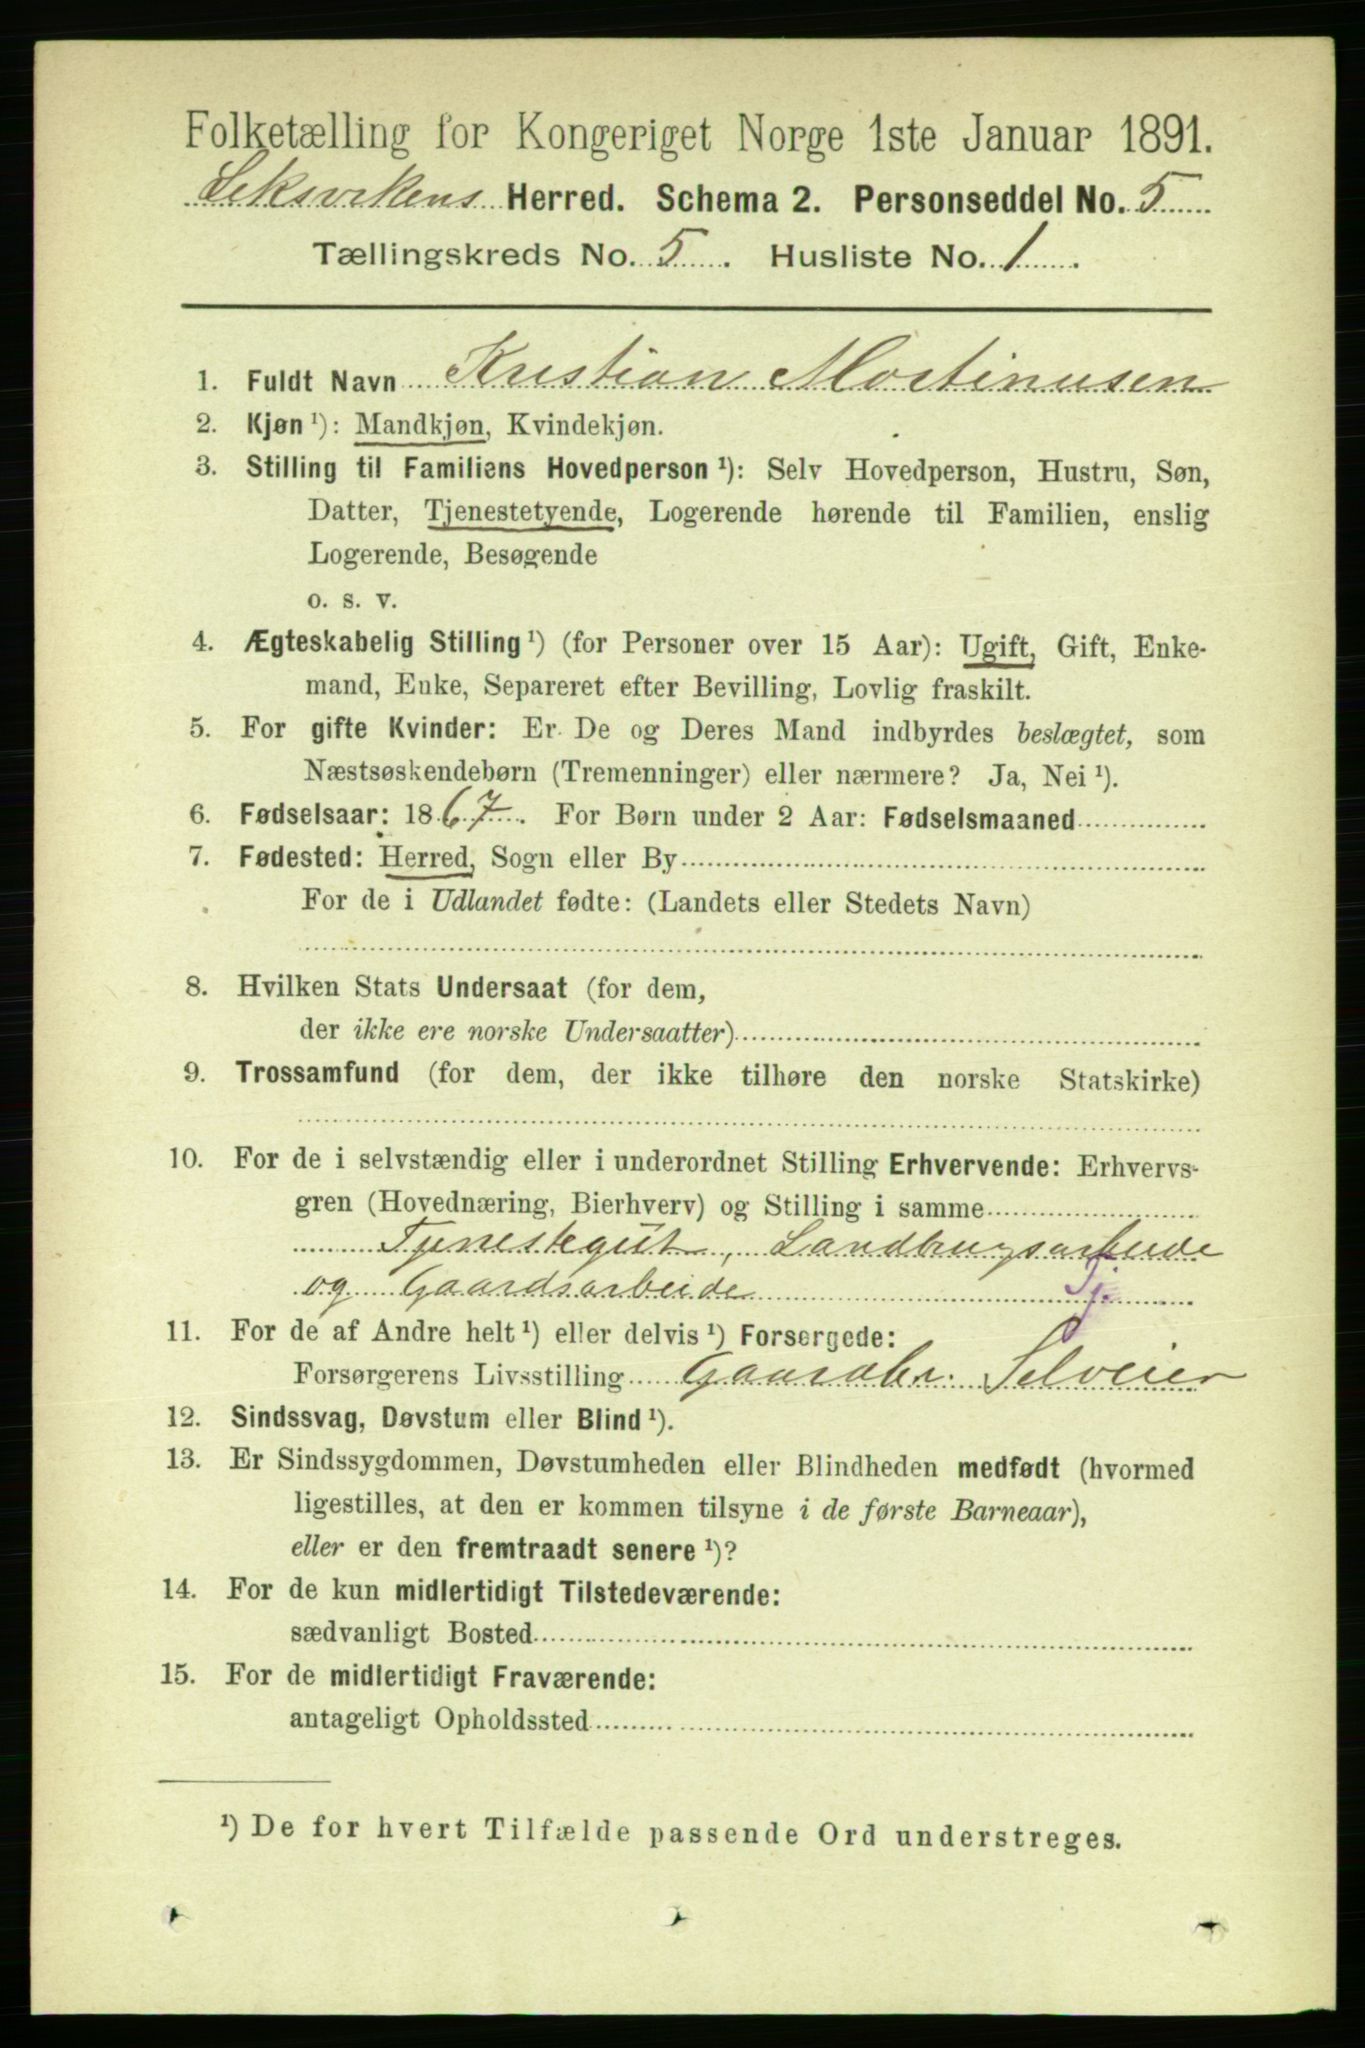 Folketælling for Kongeriget Norge 1ste Januar 1891.
Leksvikens Herred. Schema 2. Personseddel No. 5
Tællingskreds No. 5. Husliste No. 1.
1. Fuldt Navn Kristian Mortinusen
2. Kjøn ¹): Mandkjøn, Kvindekjøn.
3. Stilling til Familiens Hovedperson ¹): Selv Hovedperson, Hustru, Søn,
Datter, Tjenestetyende, Logerende hørende til Familien, enslig
Logerende, Besøgende
o. s. v.
4. Ægteskabelig Stilling ¹) (for Personer over 15 Aar): Ugift, Gift, Enke-
mand, Enke, Separeret efter Bevilling, Lovlig fraskilt.
5. For gifte Kvinder: Er De og Deres Mand indbyrdes beslægtet, som
Næstsøskendebørn (Tremenninger) eller nærmere? Ja, Nei ¹).
6. Fødselsaar: 1867. For Børn under 2 Aar: Fødselsmaaned
7. Fødested: Herred, Sogn eller By
For de i Udlandet fødte: (Landets eller Stedets Navn)
8. Hvilken Stats Undersaat (for dem,
der ikke ere norske Undersaatter)
9. Trossamfund (for dem, der ikke tilhøre den norske Statskirke)
10. For de i selvstændig eller i underordnet Stilling Erhvervende: Erhvervs-
gren (Hovednæring, Bierhverv) og Stilling i samme
Tjenestegut, Landbrugsarbeide
og Gaardsarbeide Tj.
11. For de af Andre helt ¹) eller delvis ¹) Forsørgede:
Forsørgerens Livsstilling Gaardbr. Selveier
12. Sindssvag, Døvstum eller Blind ¹).
13. Er Sindssygdommen, Døvstumheden eller Blindheden medfødt (hvormed
ligestilles, at den er kommen tilsyne i de første Barneaar),
eller er den fremtraadt senere ¹)?
14. For de kun midlertidigt Tilstedeværende:
sædvanligt Bosted
15. For de midlertidigt Fraværende:
antageligt Opholdssted
¹) De for hvert Tilfælde passende Ord understreges.